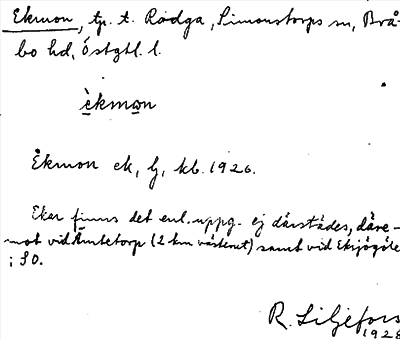 Ekmon, tp. t. Rodga, Simonstorps sn, Brå-
bo hd, Östgtl. l.
èkmon
Ekmon ek, lj, kb. 1926.
Ekar finns det enl. uppg. ej därstädes, däre-
mot vid Ämtetorp (2 km västerut) samt vid Eksjögöle
i SO.
R. Liljefors
1928